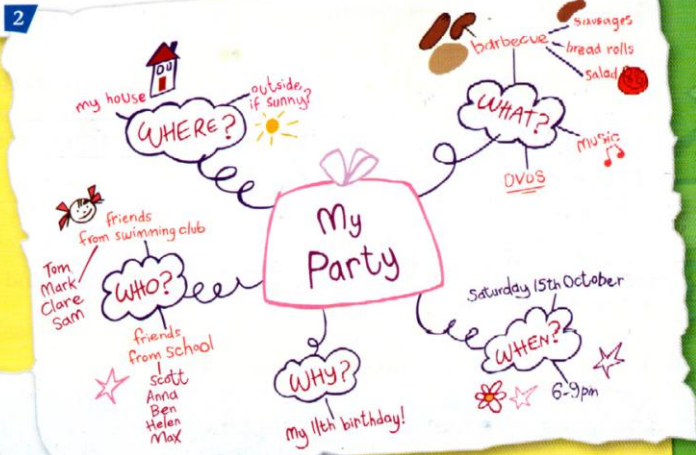 2
my house
WHERE?
outside,
if sunny?
barbecue
sausages
bread rolls
salad
WHAT?
music
DVDS
My
Party
friends
from swimming club
Tom
Mark
Clare
Sam
WHO?
friends
from school
Scott
Anna
Ben
Helen
Max
WHY?
My 11th birthday!
Saturday 15th October
WHEN?
6-9pm